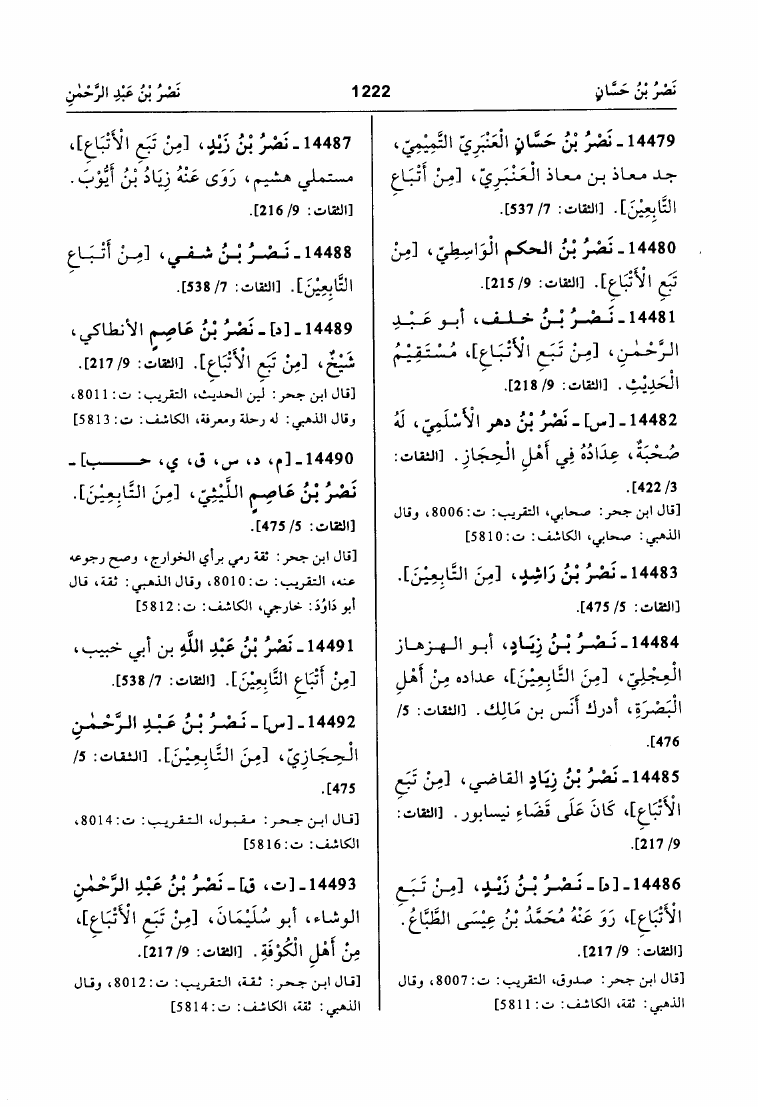 نَصْرُ بْنُ حَسَّان
1222
نَصْرُ بْنُ عَبْدِ الرَّحْمٰنِ
14479 ـ نَصْرُ بْنُ حَسَّانٍ الْعَنْبَرِيّ التَّمِيْمِيّ،
جد معاذ بن معاذ الْعَنْبَرِيّ، [مِنْ أَتْبَاعِ
التَّابِعِيْنَ]. [الثقات: 7/ 537].
14480 ـ نَصْرُ بْنُ الحكم الْوَاسِطِيّ، [مِنْ
تَبَعِ الْأَتْبَاعِ]. [الثقات: 9/ 215].
14481 ـ نَصْرُ بْنُ خلف، أبو عَبْد
الرَّحْمٰنِ، [مِنْ تَبَعِ الْأَتْبَاعِ]، مُسْتَقِيْمُ
الْحَدِيْثِ. [الثقات: 9/ 218].
14482 ـ [س] ـ نَصْرُ بْنُ دهر الْأَسْلَمِيّ، لَهُ
صُحْبَةٌ، عِدَادُهُ فِي أَهْلِ الْحِجَازِ. [الثقات:
3/ 422].
[قال ابن حجر: صحابي، التقريب: ت: 8006، وقال
الذهبي: صحابي، الكاشف: ت: 5810]
14483 ـ نَصْرُ بْنُ رَاشِدٍ، [مِنَ التَّابِعِيْنَ].
[الثقات: 5/ 475].
14484 ـ نَصْرُ بْنُ زِيَادٍ، أبو الهزهاز
الْعِجْلِيّ، [مِنَ التَّابِعِيْنَ]، عداده مِنْ أَهْلِ
الْبَصْرَةِ، أدرك أَنَس بن مَالِك. [الثقات: 5/
476].
14485 ـ نَصْرُ بْنُ زِيَادٍ القاضي، [مِنْ تَبَعِ
الْأَتْبَاعِ]، كَانَ عَلَى قَضَاء نيسابور. [الثقات:
9/ 217].
14486 ـ [د] ـ نَصْرُ بْنُ زَيْدٍ، [مِنْ تَبَعِ
الْأَتْبَاعِ]، رَوَ عَنْهُ مُحَمَّدُ بْنُ عِيْسَى الطَّبَّاعُ.
[الثقات: 9/ 217].
[قال ابن حجر: صدوق، التقريب: ت: 8007، وقال
الذهبي: ثقة، الكاشف: ت: 5811]
14487 ـ نَصْرُ بْنُ زَيْدٍ، [مِنْ تَبَعِ الْأَتْبَاعِ]،
مستملي هشيم، رَوَى عَنْهُ زِيَادُ بْنُ أَيُّوْبَ.
[الثقات: 9/ 216].
14488 ـ نَصْرُ بْنُ شفي، [مِنْ أَتْبَاعِ
التَّابِعِيْنَ]. [الثقات: 7/ 538].
14489 ـ [د] ـ نَصْرُ بْنُ عَاصِمٍ الأنطاكي،
شَيْخٌ، [مِنْ تَبَعِ الْأَتْبَاعِ]. [الثقات: 9/ 217].
[قال ابن حجر: لين الحديث، التقريب: ت: 8011،
وقال الذهبي: له رحلة ومعرفة، الكاشف: ت: 5813]
14490 ـ [م، د، س، ق، ي، حـــب] ـ
نَصْرُ بْنُ عَاصِمٍ اللَّيْثِيّ، [مِنَ التَّابِعِيْنَ].
[الثقات: 5/ 475].
[قال ابن حجر: ثقة رمي برأي الخوارج، وصح رجوعه
عنه، التقريب: ت: 8010، وقال الذهبي: ثقة، قال
أبو دَاوُدَ: خارجي، الكاشف: ت: 5812]
14491 ـ نَصْرُ بْنُ عَبْدِ اللَّهِ بن أبي خبيب،
[مِنْ أَتْبَاعِ التَّابِعِيْنَ]. [الثقات: 7/ 538].
14492 ـ [س] ـ نَصْرُ بْنُ عَبْدِ الرَّحْمٰنِ
الْحِجَازِيّ، [مِنَ التَّابِعِيْنَ]. [الثقات: 5/
475].
[قال ابن حجر: مقبول، التقريب: ت: 8014،
الكاشف: ت: 5816]
14493 ـ [ت، ق] ـ نَصْرُ بْنُ عَبْدِ الرَّحْمٰنِ
الوشاء، أبو سُلَيْمَانَ، [مِنْ تَبَعِ الْأَتْبَاعِ]،
مِنْ أَهْلِ الْكُوْفَةِ. [الثقات: 9/ 217].
[قال ابن حجر: ثقة، التقريب: ت: 8012، وقال
الذهبي: ثقة، الكاشف: ت: 5814]